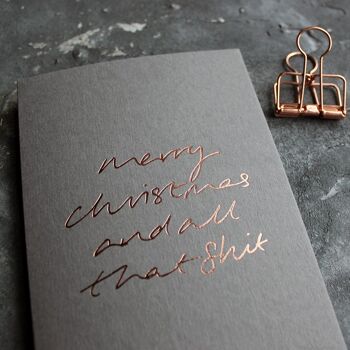 merry
christmas
and all
that shit